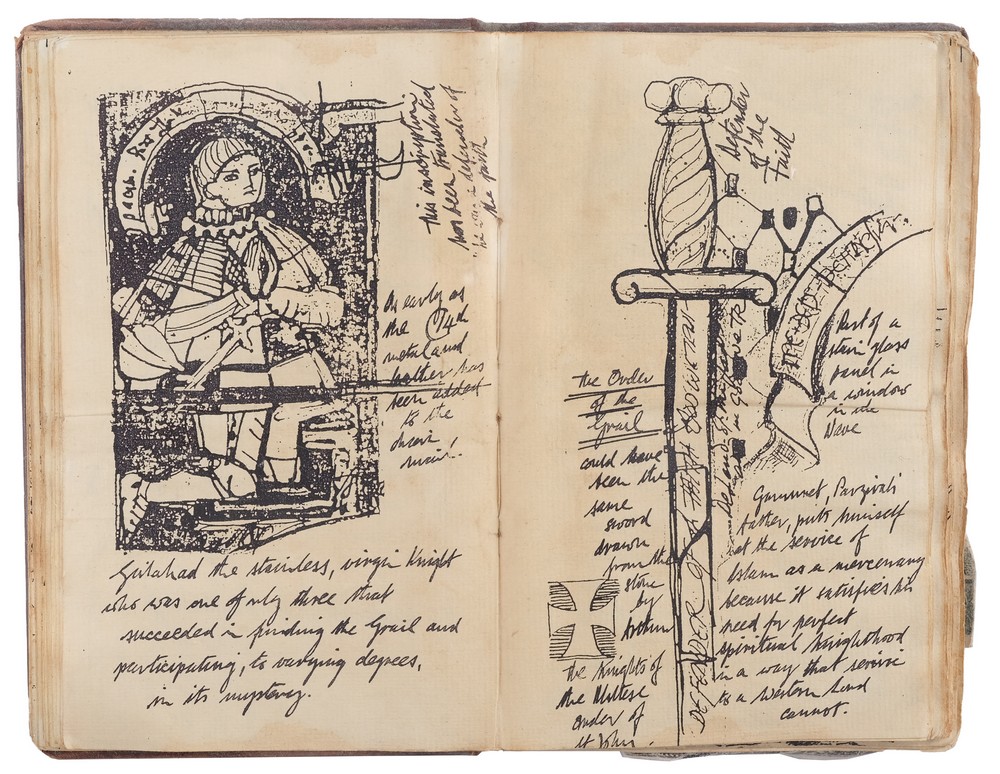 This inscription
has been translated
"he was a defender of
the faith
As early as
the C14th
metal and
leather has
been added
to the
Galahad the stainless, virgin Knight
who was one of only three that
succeeded in finding the Grail and
participating, to varying degrees,
in its mystery.
Defender
of the
Faith
Part of a
stain glass
panel in
a window
in the
Nave
the Order
of the
Grail
could have
been the
same
sword
drawn
from the
stone
by
Arthur
the Knights of
the Maltese
order of
St John.
DEFENDER OF
Gamuret, Parzival's
father, puts himself
at the service of
Islam as a mercenary
because it satisfies his
need for perfect
spiritual knighthood
in a way that service
to a Western Lord
cannot.